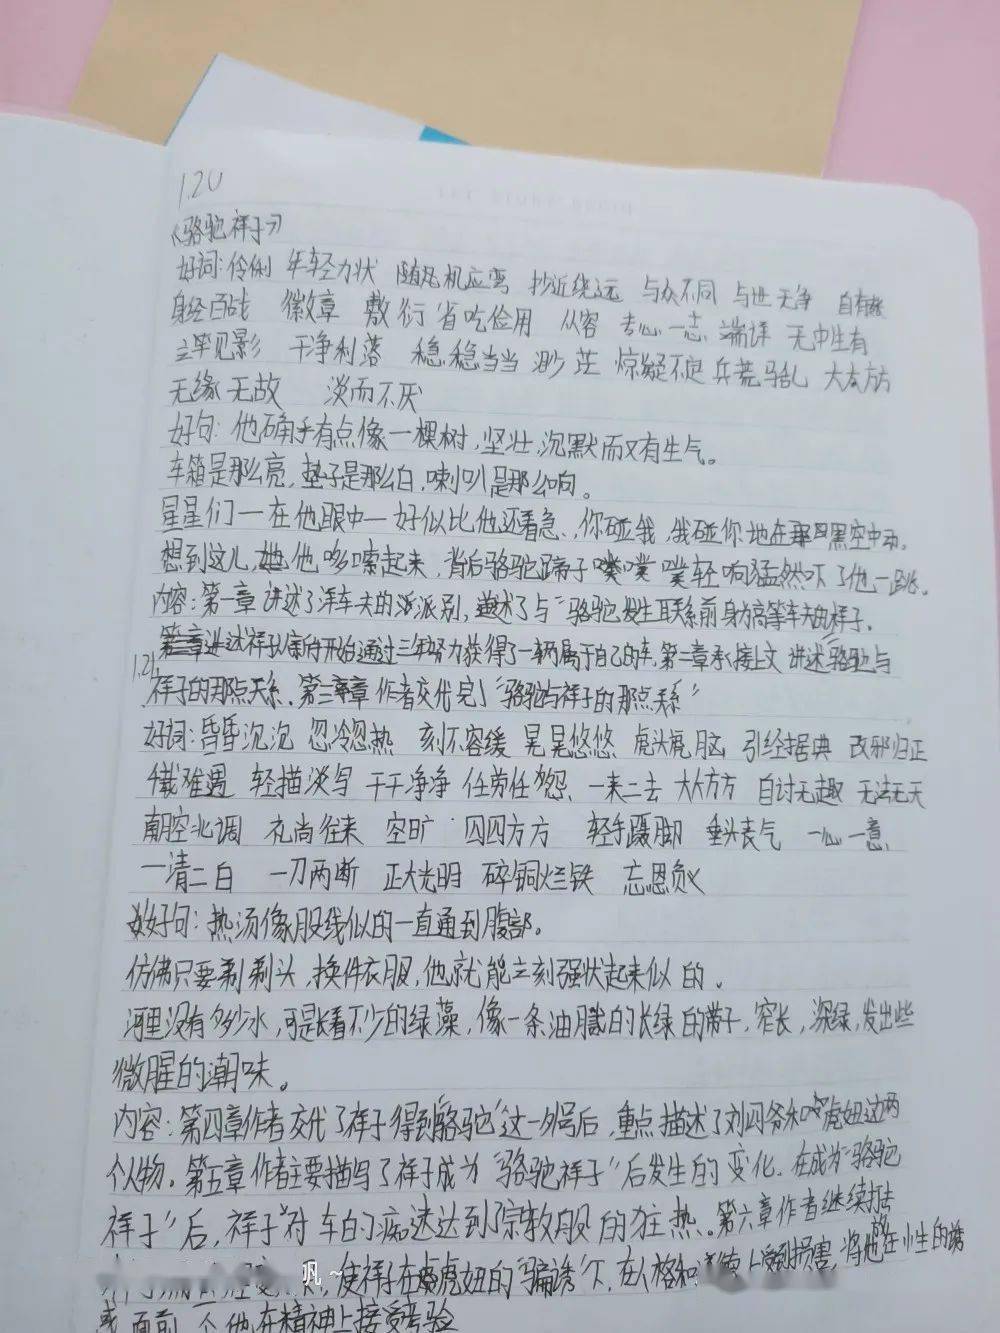 1.20
《骆驼祥子》
好词:伶俐 年轻力状 随机应弯 抄近绕远 与众不同 与世无争 自有
身经百战 徽章 敷衍 省吃俭用 从容 专心一志 端详 无中生有
立竿见影 干净利落 稳稳当当 渺茫 惊疑不定 兵荒马乱 大大方方
无缘无故 淡而不厌
好句:他确乎有点像一棵树,坚壮,沉默而又有生气。
车箱是那么亮,垫子是那么白,喇叭是那么响。
星星们一在他眼中一好似比他还着急,你碰我,我碰你地在黑空中动。
想到这儿,他哆嗦起来,背后骆驼蹄子噗噗轻响猛然吓了他一跳。
内容:第一章讲述了洋车夫的派别,述了与"骆驼发生联系前身为高等车夫的祥子。
祥子从开始通过三年努力获得了一辆属于自己的车,第二章承接上文讲述"骆驼与
1.21
祥子的那点关系,第三章作者交代完了"骆驼与祥子的那点关系"
好词:昏昏沉沉 忽冷忽热 刻不容缓 晃晃悠悠 虎头虎脑 引经据典 改邪归正
千载难遇 轻描淡写 干干净净 任劳任怨 一来二去 大大方方 自讨无趣 无法无天
南腔北调 礼尚往来 空旷 四四方方 轻手蹑脚 垂头丧气 一心一意
一清二白 一刀两断 正大光明 碎铜烂铁 忘恩负义
好句:热汤像股线似的一直通到腹部。
仿佛只要剃剃头,换件衣服,他就能立刻强状起来似的。
河里没有多少水,可是长着不少的绿藻,像一条油腻的长绿的带子,窄长,深绿,发出些
微腥的潮味。
内容:第四章作者交代了祥子得到"骆驼"这一外号后,重点描述了刘四爷和虎妞这两
个人物。第五章作者主要描写了祥子成为"骆驼祥子"后发生的变化.在成为"骆驼
祥子"后,祥子对车的痴迷达到了宗教般的狂热。第六章作者继续
使祥子在虎妞的"骗诱"下,在人格和上受到损害,将他在小生的诱
惑面前 他在精神上接受考验
飒~